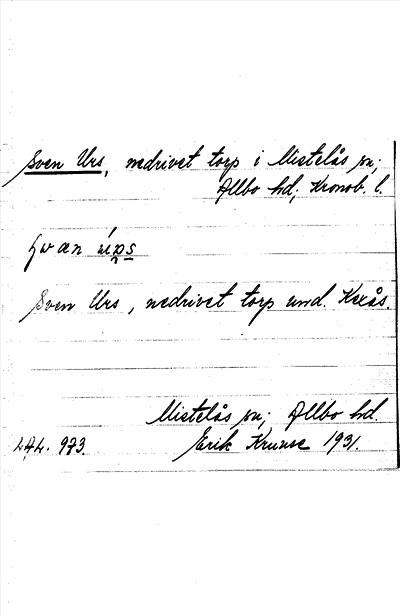 Sven Urs, nedrivet torp i Mistelås sn;
Allbo hd; Kronob. l.
Sven Urs, nedrivet torp und. Kexås.
Mistelås sn; Allbo hd.
L.A.L. 973. Erik Kruuse 1931.